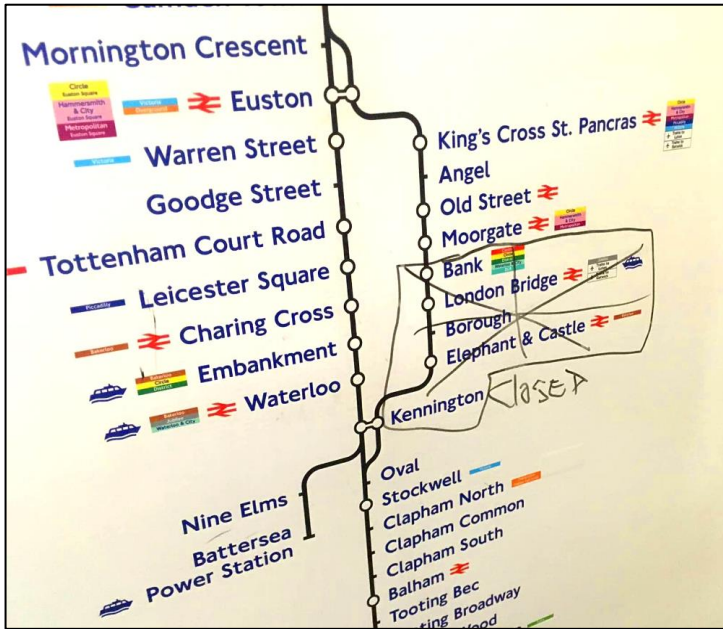 Mornington Crescent
Circle
Euston Square
Hammersmith
& City
Euston Square
Metropolitan
Euston Square
Victoria
Overground
Euston
Victoria
Warren Street
Goodge Street
Tottenham Court Road
Piccadilly
Leicester Square
Bakerloo
Charing Cross
Bakerloo
Circle
District
Embankment
Bakerloo
Waterloo & City
Waterloo
Nine Elms
Battersea
Power Station
King's Cross St. Pancras
Angel
Old Street
Moorgate
Bank
London Bridge
Borough
Elephant & Castle
Kennington
CLOSED
Oval
Stockwell
Clapham North
Clapham Common
Clapham South
Balham
Tooting Bec
Broadway